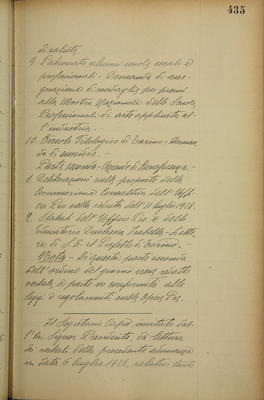 435
9. Patronato alunni scuole serali e
professionali - Domanda di asse-
gnazione di medaglie per premi
alla Mostra Nazionale delle Scuole
Professionali di arte applicata al-
l'industria.
10. Circolo Filologico di Torino - Doman-
da di sussidio.
Parte seconda -
Deliberazioni sulle proposte della
Commissione Consultiva dell'Uffi-
cio Pio nella seduta dell'11 luglio 1928.
2. Statuti dell'Ufficio Pio e dello
Educatorio Duchessa Isabella - Lette-
ra di S. E. il Prefetto di Torino.
Nota - Di questa parte seconda
dell'ordine del giorno venne redatto
verbale a parte in conformità alle
leggi e regolamenti sulle Opere Pie.
Il Segretario Capo, invitato dal-
l'On. Signor Presidente, dà lettura
dei verbali della precedente adunanza
in data 6 luglio 1928, relativi tanto